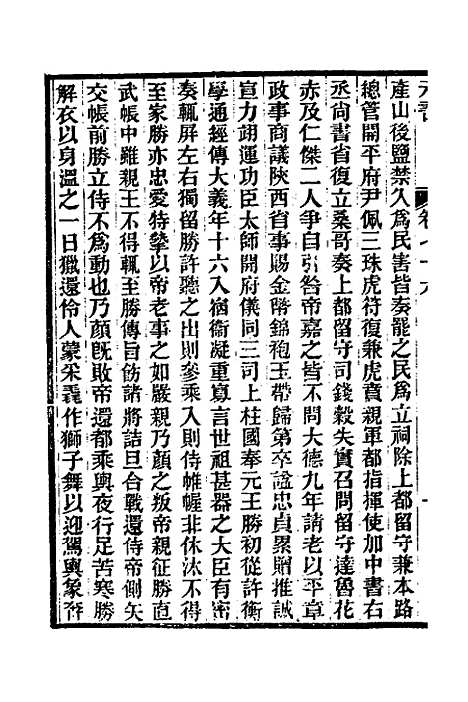 產山後鹽禁久爲民害皆奏罷之民爲立祠除上都留守兼本路
總管開平府尹佩三珠虎符復兼虎賁親軍都指揮使加中書右
丞尚書省復立桑哥奏上都留守司錢穀失實召問留守達魯花
赤及仁傑二人爭自引咎帝嘉之皆不問大德九年請老以平章
政事商議陝西省事賜金幣錦袍玉帶歸第卒諡忠貞累贈推誠
宣力翊運功臣太師開府儀同三司上柱國奉元王勝初從許衡
學通經傳大義年十六入宿衞凝重寡言世祖甚器之大臣有密
奏輒屏左右獨留勝許聽之出則參乘入則侍帷幄非休沐不得
至家勝亦忠愛特摯以帝老事之如嚴親乃顏之叛帝親征勝直
武帳中雖親王不得輒至勝傳旨飭諸將詰旦合戰還侍帝側矢
交帳前勝立侍不爲動也乃顏旣敗帝還都乘輿夜行足苦寒勝
解衣以身溫之一日獵還伶人蒙采毳作獅子舞以迎駕輿象奔